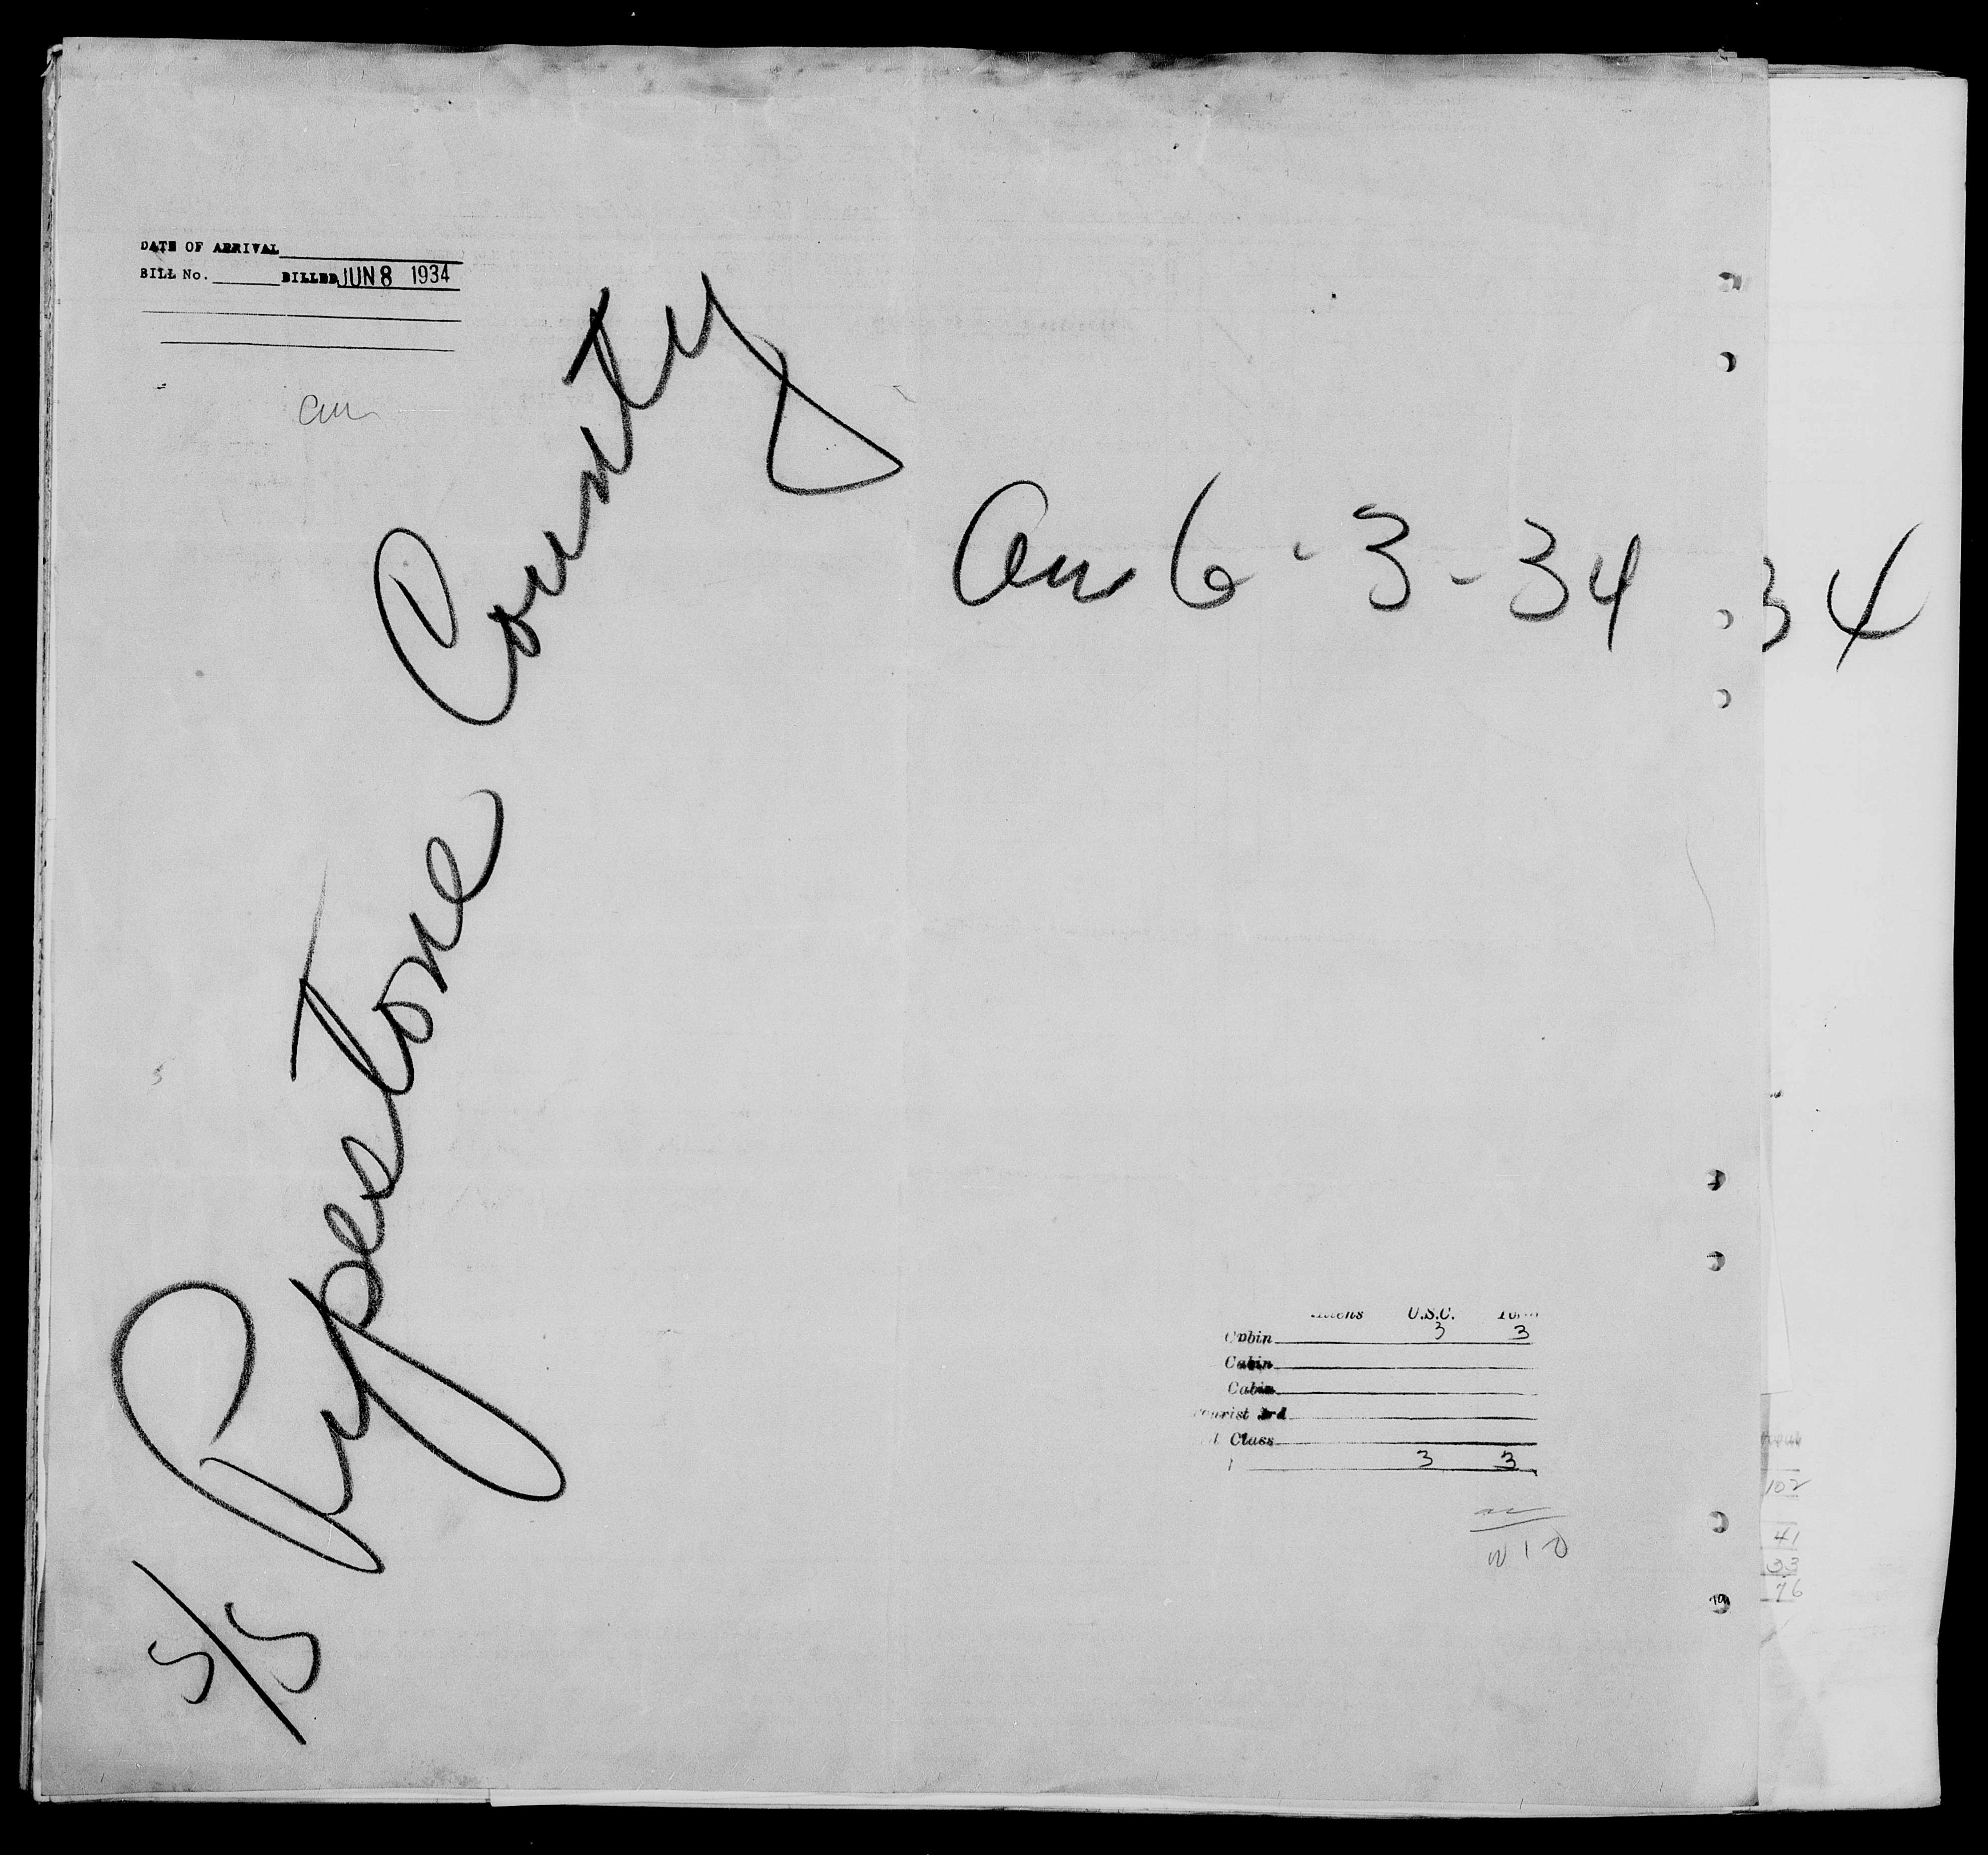 DATE OF ARRIVAL
BILL No. BILLED JUN 8 1934
S/S Pipestone County
Arr 6-3-34
34
U.S.C.
Cabin 3 3
Cabin
Cabin
Tourist 3rd
Class
3 3
102
41
33
76